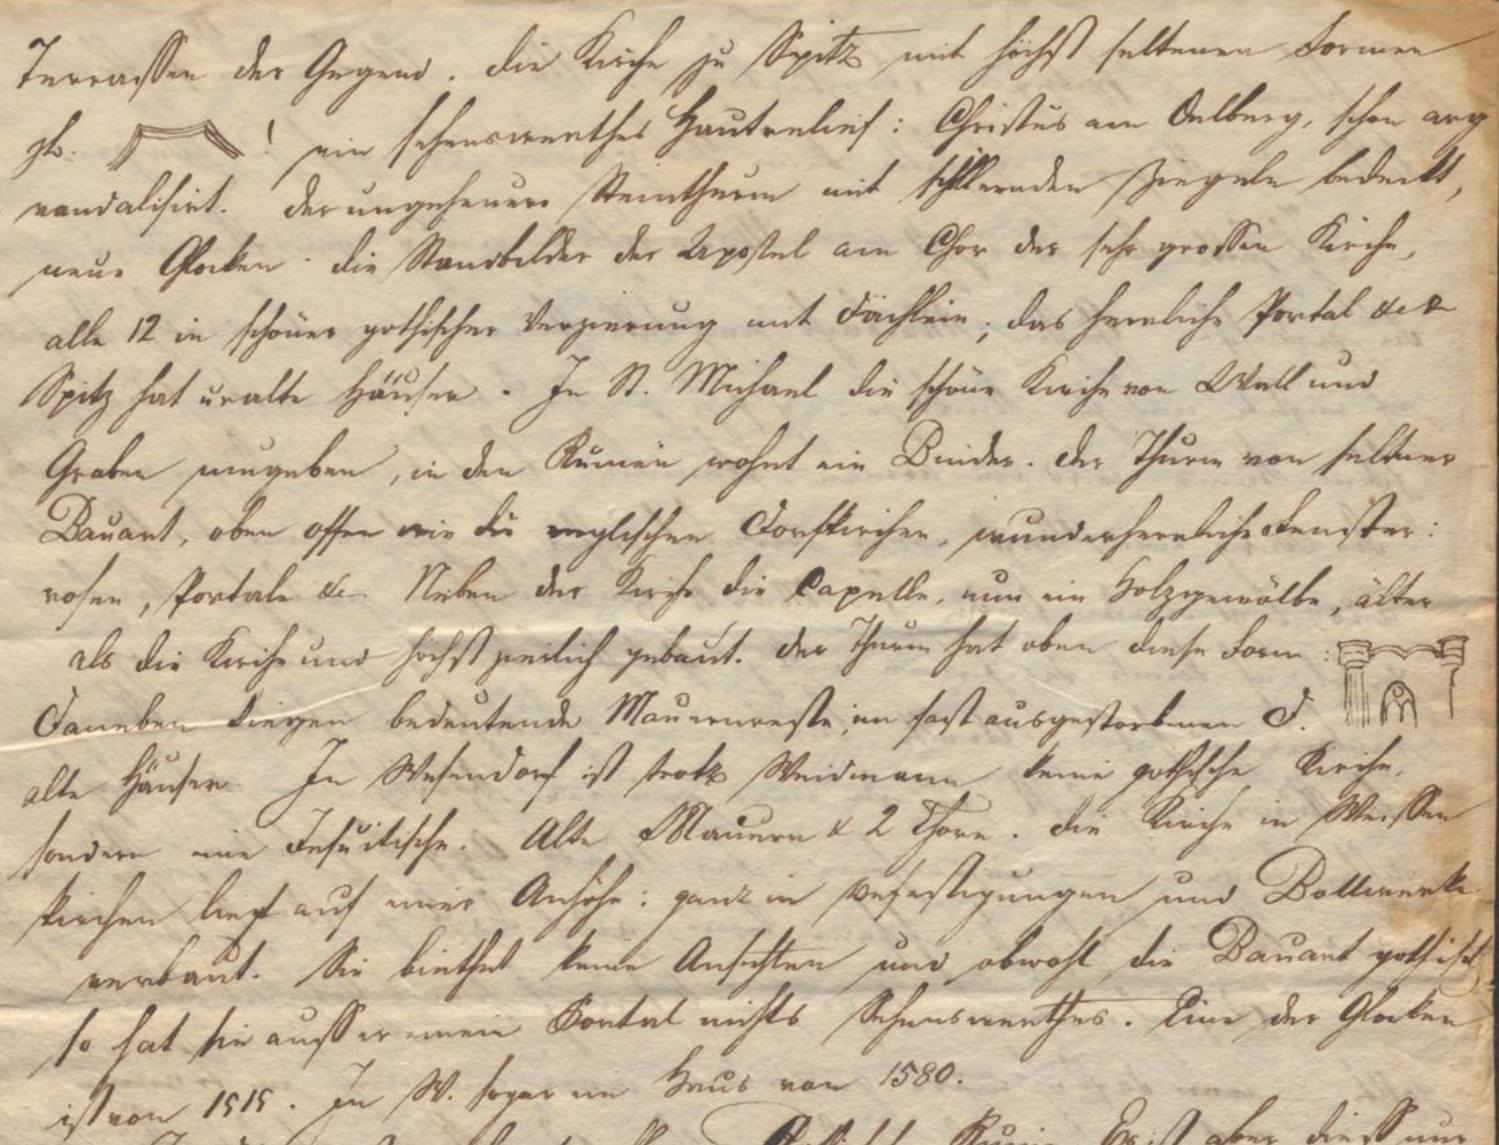 Terrassen der Gegend. Die Kirche zu Spitz mit höchst seltenen Formen
zb. ! ein sehenswerthes Hautrelief: Christus am Oelberg, schon arg
vandalisirt. Der ungeheuere Steinthurm mit schillernden Ziegeln bedeckt,
neue Glocken. Die Standbilder der Apostel am Chor der sehr grossen Kirche,
alle 12 in schöner gothischer Verzierung mit Dächlein; das herrliche Portal &c &
Spitz hat uralte Häuser. In St. Michael die schöne Kirche von Wall und
Graben umgeben, in den Ruinen wohnt ein Binder. Der Thurm von seltner
Bauart, oben offen wie die englischen Dorfkirchen, wunderherrliche Fenster:
rosen, Portale &c Neben der Kirche die Capelle, nun ein Holzgewölbe, älter
als die Kirche und höchst zierlich gebaut. Der Thurm hat oben diese Form:
Daneben liegen bedeutende Mauernreste, im fast ausgestorbenen D.
alte Häuser. In Wesendorf ist trotz Weidmann keine gothische Kirche,
sondern eine Jesuitische. Alte Mauern & 2 Thore. Die Kirche in Weissen
kirchen liegt auf einer Anhöhe: ganz in Befestigungen und Bollwerke
verbaut. Sie biethet keine Ansichten und obwohl die Bauart gothisch
so hat sie ausser einem Portal nichts Sehenswerthes. Eine der Glocken
ist von 1515. In W. sogar ein Haus von 1580.
Ruine Es ist aber diess nur